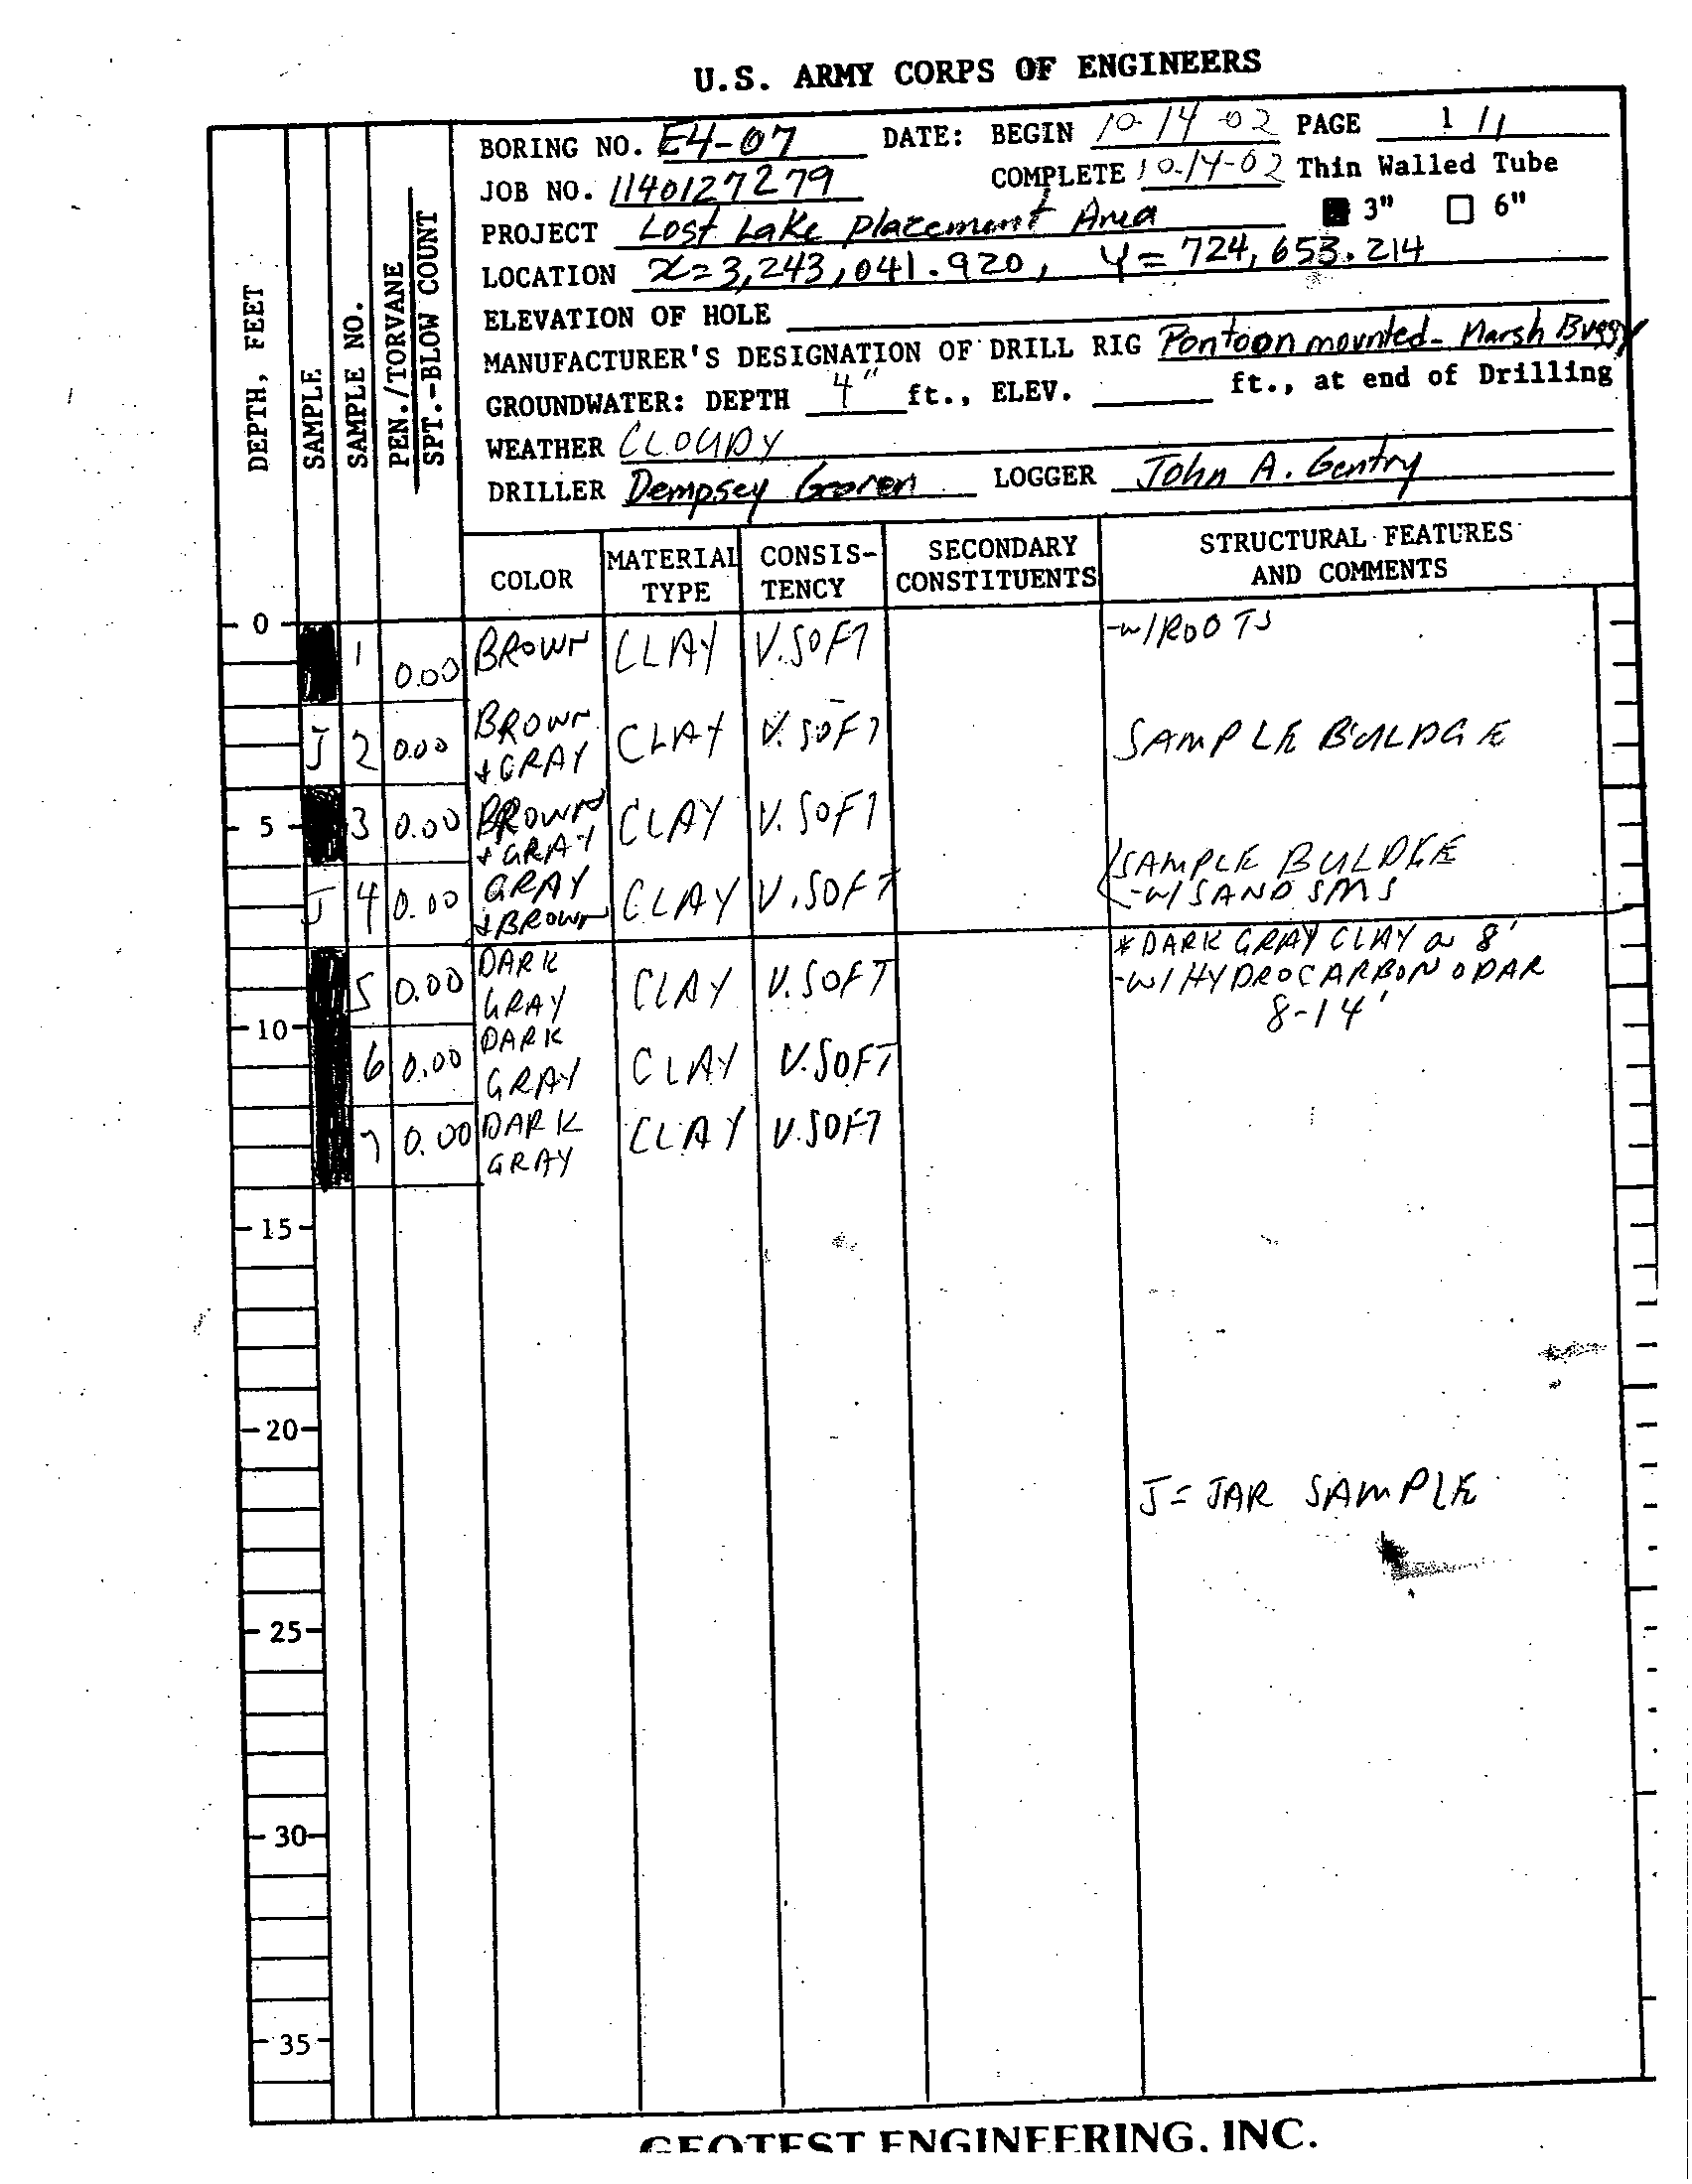 U.S. ARMY CORPS OF ENGINEERS
BORING NO. E4-07 DATE: BEGIN 10-14-02 PAGE 1 / 1
JOB NO. 1140127279 COMPLETE 10-14-02 Thin Walled Tube
PROJECT Lost Lake Placement Area 3" 6"
LOCATION x=3,243,041.920, Y=724,653.214
ELEVATION OF HOLE
MANUFACTURER'S DESIGNATION OF DRILL RIG Pontoon mounted- Marsh Buggy
GROUNDWATER: DEPTH 4" ft., ELEV. ft., at end of Drilling
WEATHER CLOUDY
DRILLER Dempsey LOGGER John A. Gentry
DEPTH, FEET
SAMPLE
SAMPLE NO.
PEN./TORVANE
SPT.-BLOW COUNT
COLOR
MATERIAL TYPE
CONSIS-TENCY
SECONDARY CONSTITUENTS
STRUCTURAL FEATURES AND COMMENTS
0
1 0.00 BROWN CLAY V.SOFT -w/ROOTS
J 2 0.00 BROWN +GRAY CLAY V.SOFT SAMPLE BULDGE
5
3 0.00 BROWN +GRAY CLAY V.SOFT
J 4 0.00 GRAY +BROWN CLAY V.SOFT SAMPLE BULDGE
-W/SAND SMS
5 0.00 DARK GRAY CLAY V.SOFT *DARK GRAY CLAY @ 8'
-W/HYDROCARBON ODAR
8-14'
10
6 0.00 DARK GRAY CLAY V.SOFT
7 0.00 DARK GRAY CLAY V.SOFT
15
20
J= JAR SAMPLE
25
30
35
GEOTEST ENGINEERING, INC.